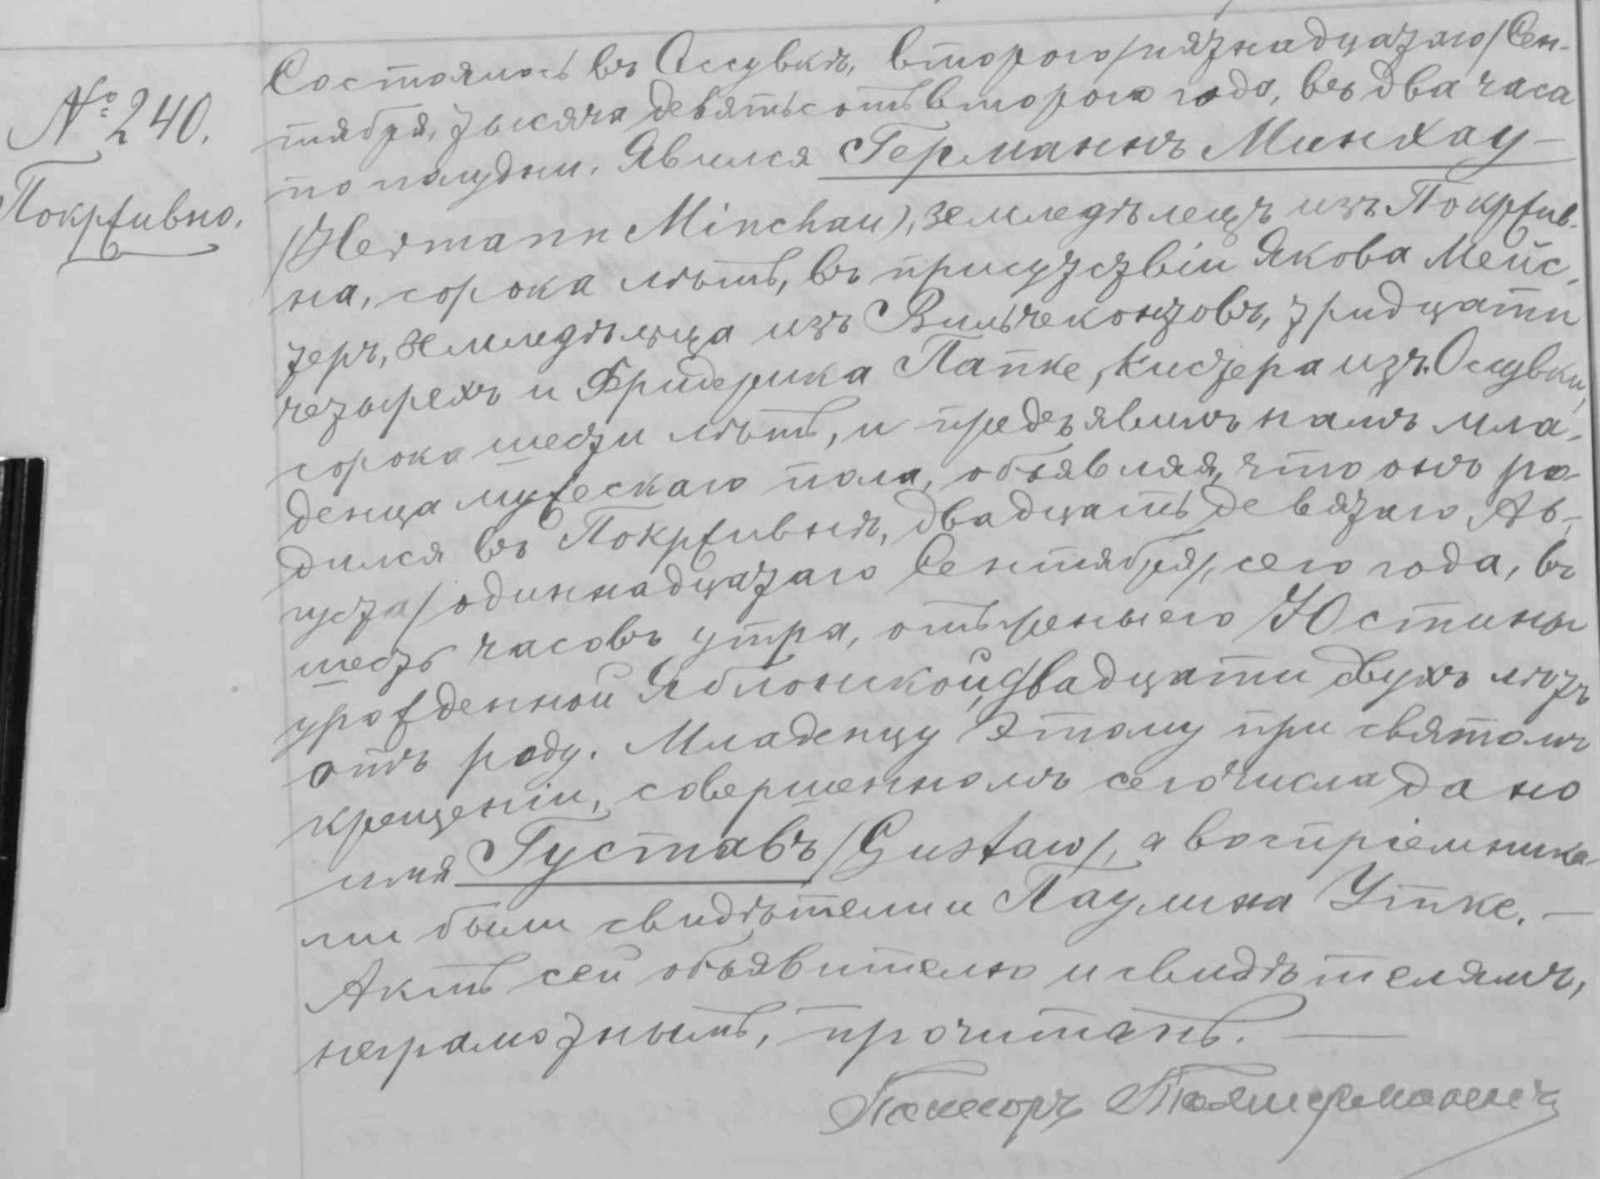 № 240.
Покрживно.
Состоялось въ Оссувкѣ, второго/пятнадцатаго/Сен-
тября, тысяча девятьсотъ второго года, въ два часа
по полудни. Явился Германнъ Минхау —
/Hermann Minchau/, земледѣлецъ изъ Покржив-
на, сорока лѣтъ, въ присутствіи Якова Мейс-
теръ, земледѣльца изъ Вильчеконтовъ, тридцати
четырехъ и Фридерика Папке, кистера изъ Осувки,
сорока шести лѣтъ, и предъявилъ намъ мла-
денца мужескаго пола, объявляя, что онъ ро-
дился въ Покрживнѣ, двадцать девятаго Ав-
густа/одиннадцатаго Сентября/, сего года, въ
шесть часовъ утра, отъ жены его Юстины
урожденной Яблонской, двадцати двухъ лѣтъ
отъ роду. Младенцу этому при святомъ
крещеніи, совершенномъ сего числа дано
имя Густавъ/Gustaw/, а воспріемника-
ми были свидѣтели и Паулина Утке. —
Актъ сей объявителю и свидѣтелямъ,
неграмотнымъ, прочитанъ. —
Пасторъ